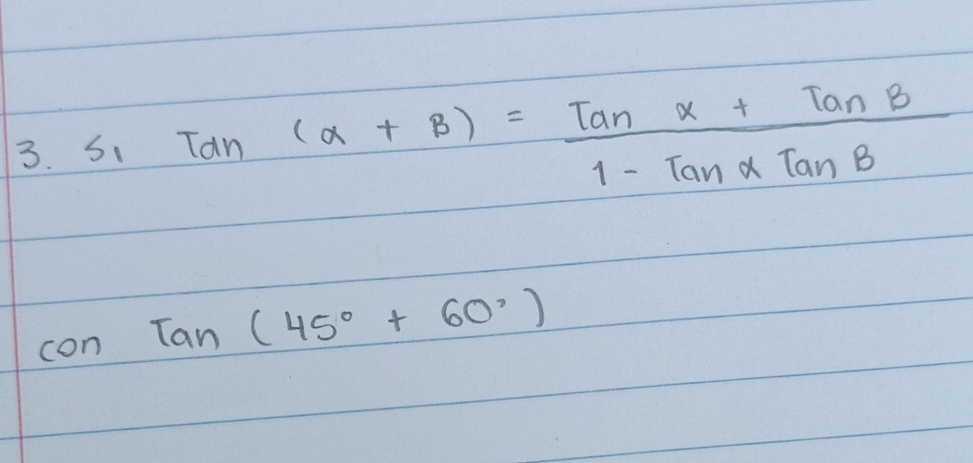 3. Si Tan (α + B) = Tan α + Tan B
1 - Tan α Tan B
con Tan (45° + 60°)